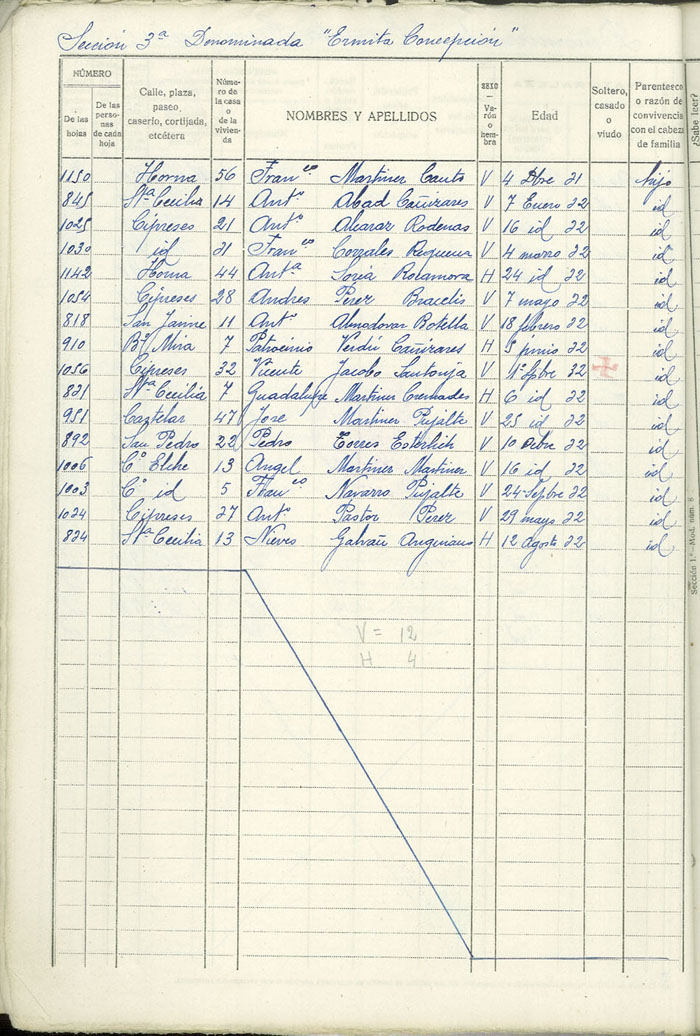 Sección 3ª Denominada "Ermita Concepción"
NÚMERO
De las hojas
De las personas de cada hoja
Calle, plaza, paseo, caserío, cortijada, etcétera
Número de la casa o de la vivienda
NOMBRES Y APELLIDOS
SEXO — Varón o hembra
Edad
Soltero, casado o viudo
Parentesco o razón de convivencia con el cabeza de familia
¿Sabe leer?
1150 Horna 56 Franco Martinez Canto V 4 Dbre 21 hijo
845 Stª Cecilia 14 Antº Abad Cañizares V 7 Enero 22 id
1025 Cipreses 21 Antº Alcaraz Rodenas V 16 id 22 id
1030 id 21 Franco Corrales Requena V 4 marzo 22 id
1142 Horna 44 Antª Soria Rolamora H 24 id 22 id
1054 Cipreses 28 Andres Perez V 7 mayo 22 id
818 San Jaime 11 Antº Almodovar Botella V 18 febrero 22 id
910 Bº Mira 7 Patrocinio Verdú Cañizares H 5 junio 22 id
1056 Cipreses 32 Vicente Jacobo Santonja V 22 id
821 Stª Cecilia 7 Guadalupe Martinez Cremades H 6 id 22 id
951 Castelar 47 Jose Martinez Pujalte V 25 id 22 id
892 San Pedro 22 Pedro Torres Esterlich V 10 Octbre 22 id
1006 Cº Elche 13 Angel Martinez Martinez V 16 id 22 id
1003 Cº id 5 Franco Navarro Pujalte V 24 Sepbre 22 id
1024 Cipreses 27 Antº Pastor Perez V 29 mayo 22 id
824 Stª Cecilia 13 Nieves Galvañ Anguiano H 12 agosto 22 id
V = 12
H 4
Sección 1.ª—Mod. núm. 6